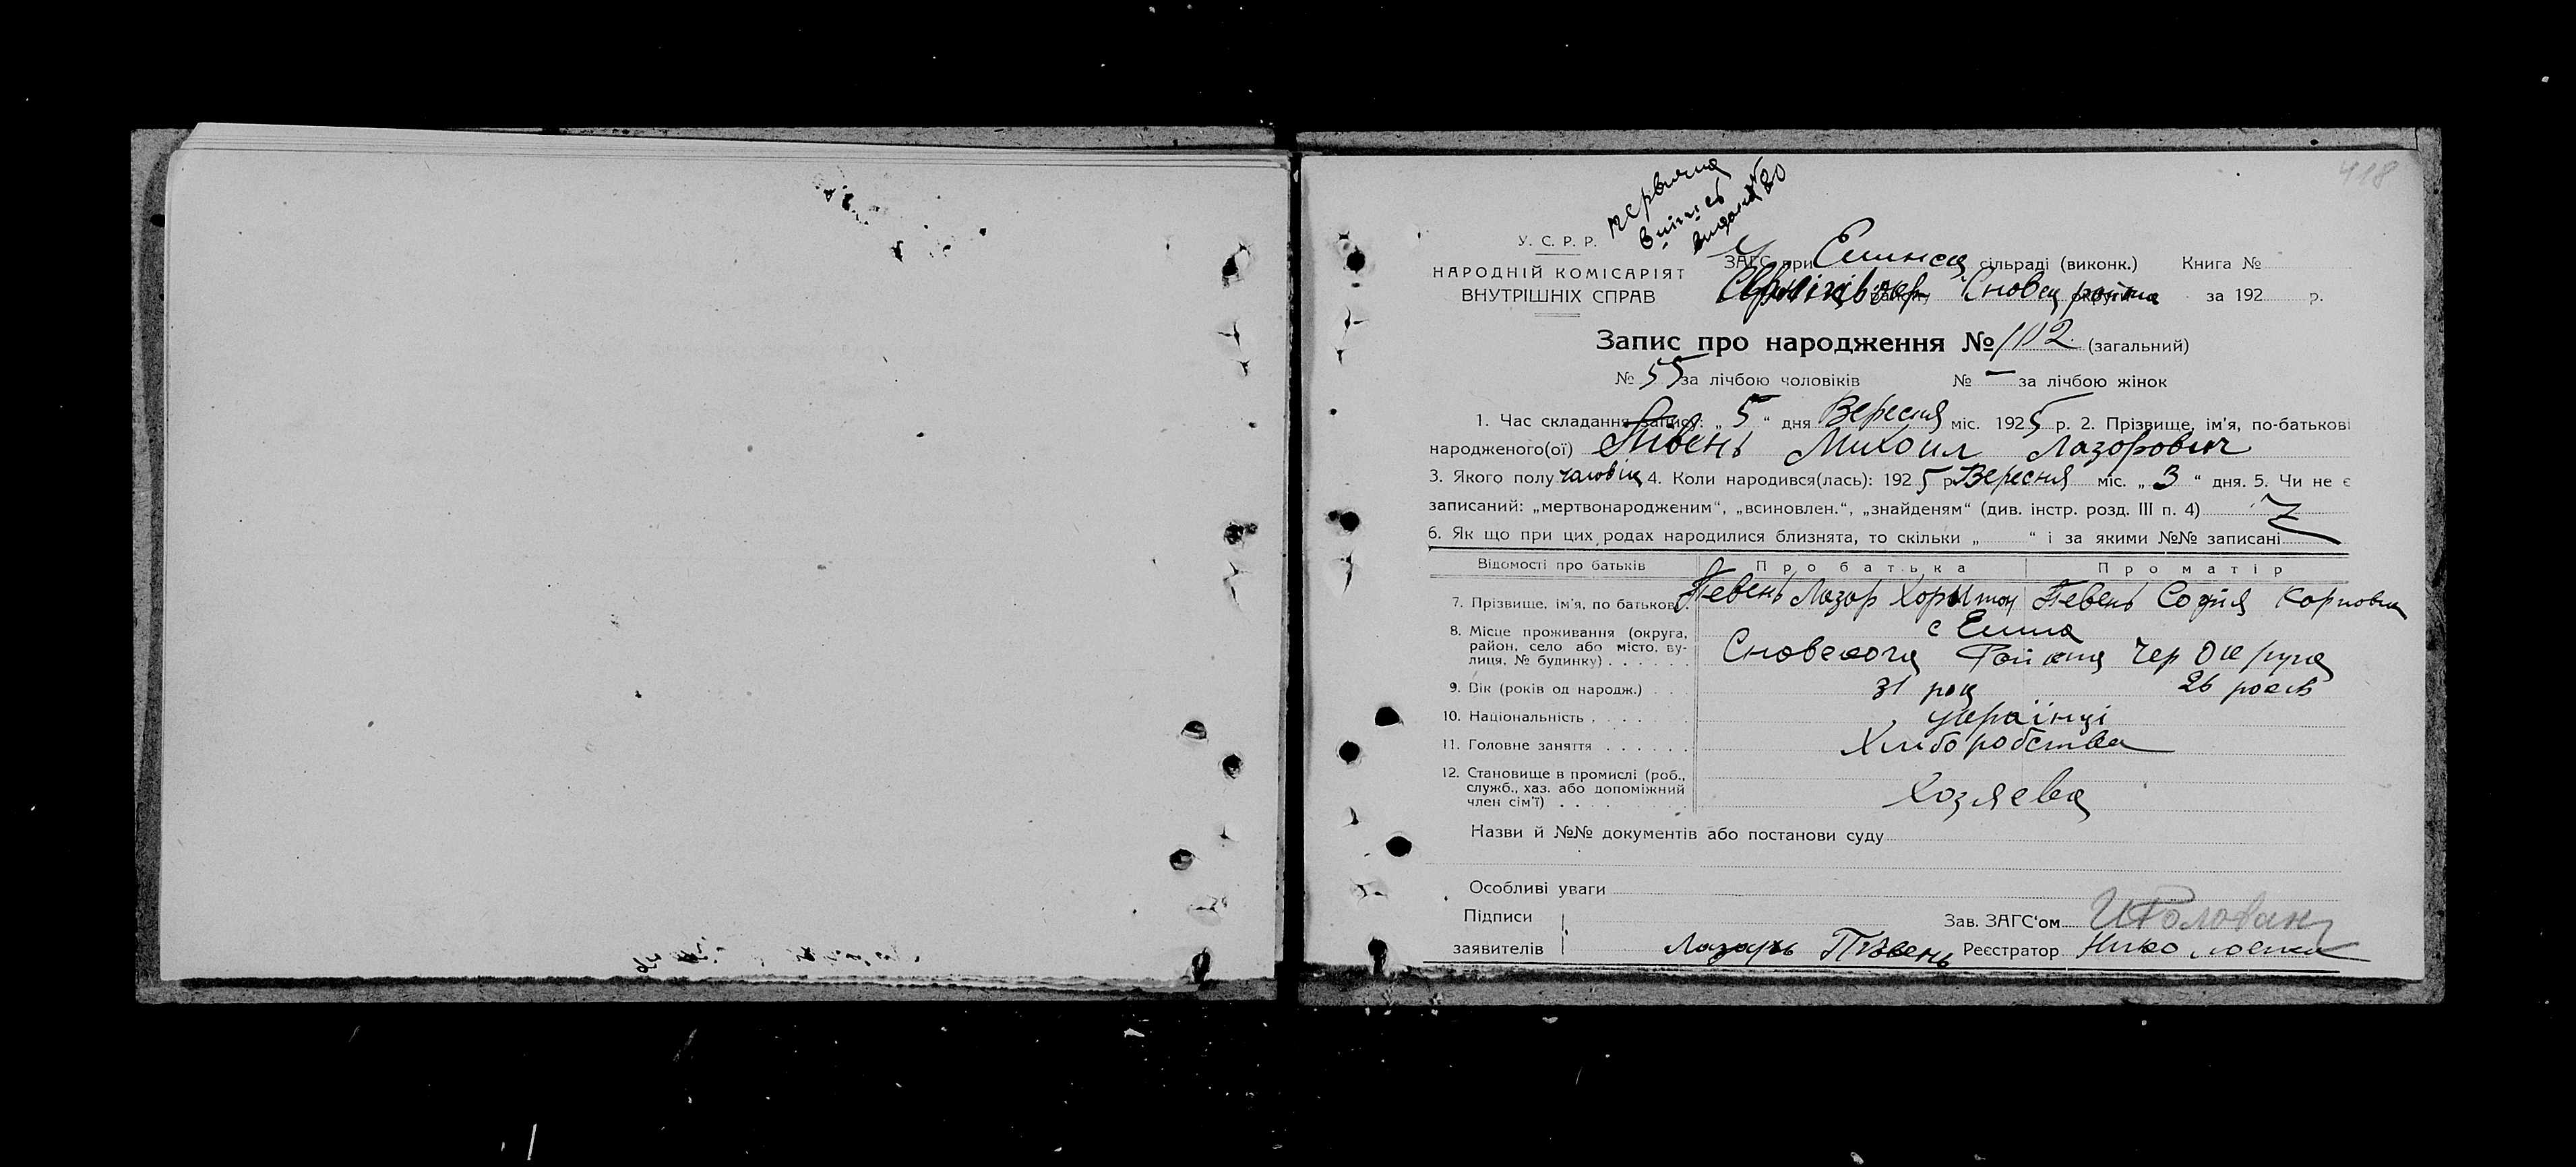 418
первична
випись
видана
У. С. Р. Р.
НАРОДНІЙ КОМІСАРІЯТ
ВНУТРІШНІХ СПРАВ
ЗАГС при сільраді (виконк.) Книга №
Сновск района за 192 р.
Запис про народження № 102 (загальний)
№ 55 за лічбою чоловіків № – за лічбою жінок
1. Час складання запису: „ 5 “ дня Вересня міс. 1925 р. 2. Прізвище, ім'я, по-батькові
народженого(ої) Пивень Михаил Лазорович
3. Якого полу чоловік 4. Коли народився(лась): 1925 р. Вересня міс. „ 3 “ дня. 5. Чи не є
записаний: „мертвонародженим“, „всиновлен.“, „знайденям“ (див. інстр. розд. III п. 4)
6. Як що при цих родах народилися близнята, то скільки „ “ і за якими №№ записані
Відомості про батьків Про батька Про матір
7. Прізвище, ім'я, по батькові. Певень Лазор Певень Софія Карповна
8. Місце проживання (округа, район, село або місто, вулиця, № будинку) . . . . . . с
Сновского Района Чер Округа
9. Вік (років од народж.) . . . 31 рок 26 роков
10. Національність . . . . . . українці
11. Головне заняття . . . . . . Хлиборобства
12. Становище в промислі (роб., служб., хаз. або допоміжний член сім'ї) . . . . Хозяева
Назви й №№ документів або постанови суду
Особливі уваги
Підписи
заявителів Лазарь Півень
Зав. ЗАГС'ом Голован
Реєстратор